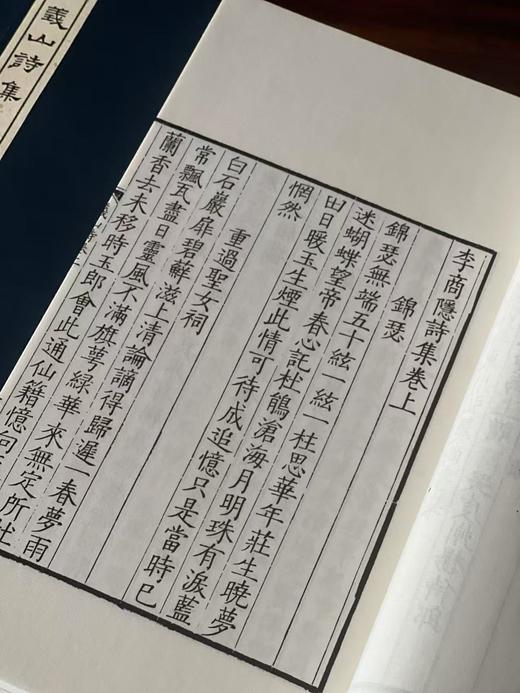 義山詩集
李商隱詩集卷上
錦瑟
錦瑟無端五十絃一絃一柱思華年莊生曉夢
迷蝴蝶望帝春心託杜鵑滄海月明珠有淚藍
田日暖玉生煙此情可待成追憶只是當時已
惘然
重過聖女祠
白石巖扉碧蘚滋上清論謫得歸遲一春夢雨
常飄瓦盡日靈風不滿旗萼綠華來無定所杜
蘭香去未移時玉郎會此通仙籍憶向